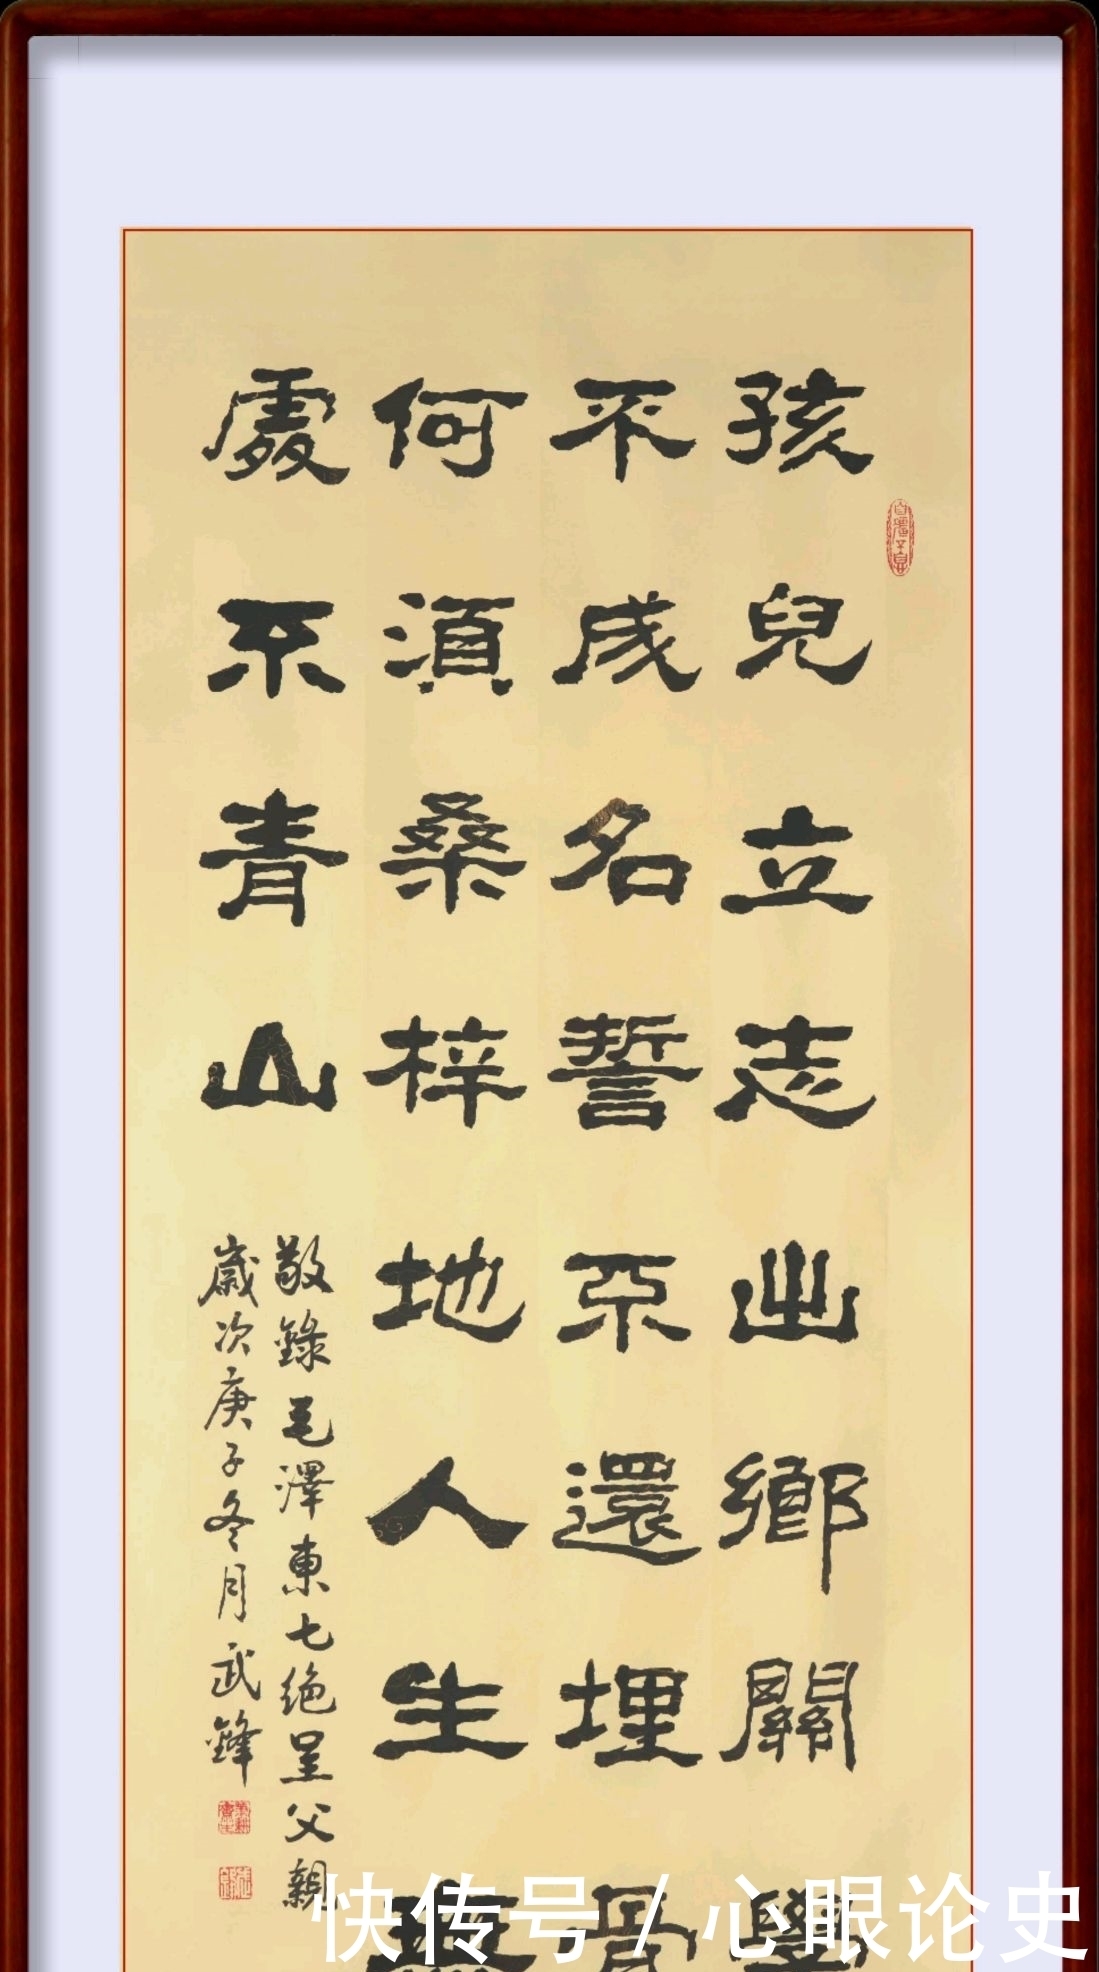 孩兒立志出鄉關學
不成名誓不還埋骨
何須桑梓地人生無
處不青山
敬錄毛澤東七绝呈父親
歲次庚子冬月武鋒
快传号 / 心眼论史